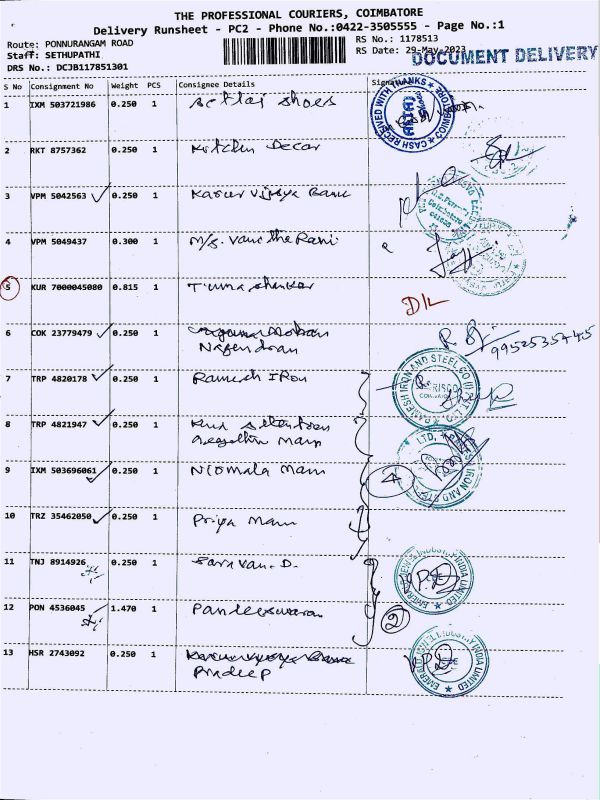 THE PROFESSIONAL COURIERS, COIMBATORE
Delivery Runsheet - PC2 - Phone No.:0422-3505555 - Page No.:1
Route: PONNURANGAM ROAD RS No.: 1178513
Staff: SETHUPATHI RS Date: 29-May-2023
DOCUMENT DELIVERY
DRS No.: DCJB117851301
S No Consignment No Weight PCS Consignee Details Signature
1 IXM 503721986 0.250 1 Settai Shoes
2 RKT 8757362 0.250 1 Kitchen Decor
3 VPM 5042563 0.250 1 Karur Vijaya Bank
4 VPM 5049437 0.300 1 M/s. Vanitha Rani
5 KUR 7000045080 0.815 1 Tuma Shankar D/L
6 COK 23779479 0.250 1
Nagendran
7 TRP 4820178 0.250 1 Ramesh IRon
8 TRP 4821947 0.250 1
9 IXM 503696061 0.250 1 Nirmala Mam 4
10 TRZ 35462050 0.250 1 Priya Mam
11 TNJ 8914926 0.250 1 Saravan. D.
12 PON 4536045 1.470 1 Pandeeswaran 2
13 HSR 2743092 0.250 1
Pradeep